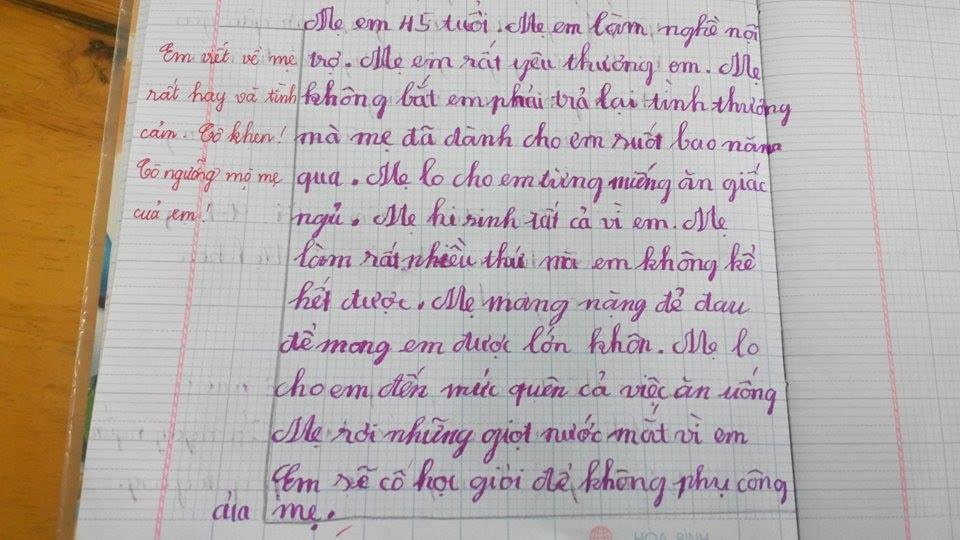 Mẹ em 45 tuổi. Mẹ em làm nghề nội
trợ. Mẹ em rất yêu thương em. Mẹ
không bắt em phải trả lại tình thương
mà mẹ đã dành cho em suốt bao năm
qua. Mẹ lo cho em từng miếng ăn giấc
ngủ. Mẹ hi sinh tất cả vì em. Mẹ
làm rất nhiều thứ mà em không kể
hết được. Mẹ mang nặng đẻ đau
để mong em được lớn khôn. Mẹ lo
cho em đến mức quên cả việc ăn uống
Mẹ rơi những giọt nước mắt vì em
Em sẽ cố học giỏi để không phụ công
của mẹ.
Em viết về mẹ
rất hay và tình
cảm. Cô khen!
Cô ngưỡng mộ mẹ
của em!
HOA BINH